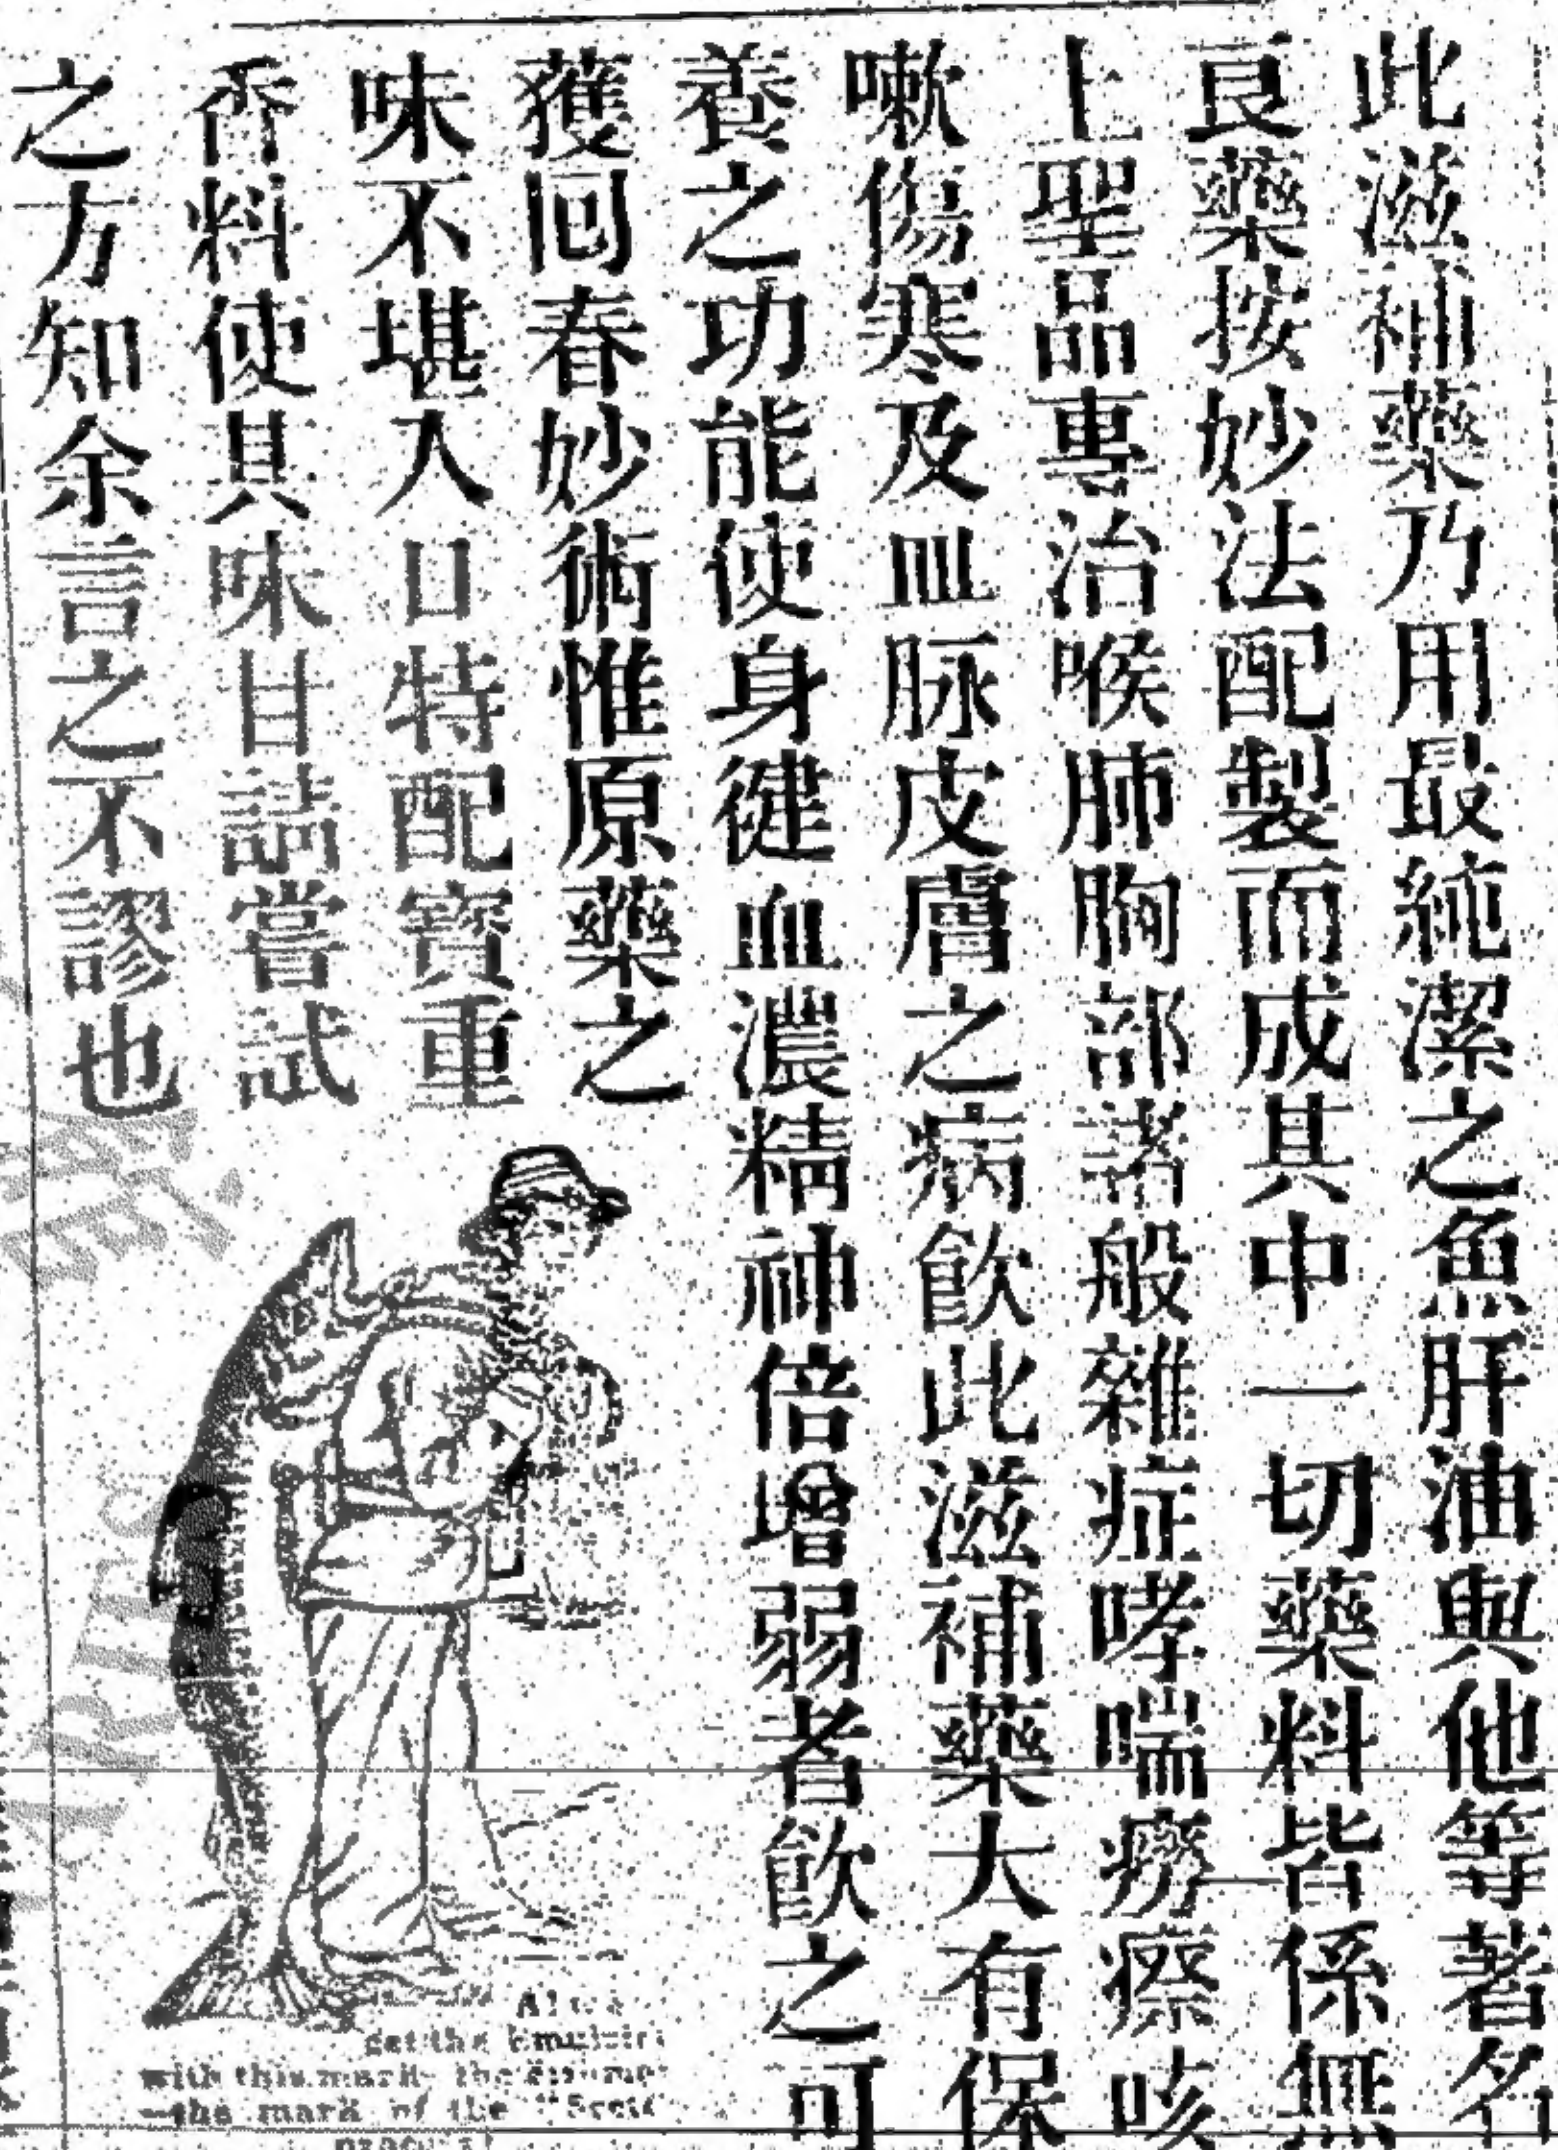 此滋補藥乃用最純潔之魚肝油與他等著名
良藥按妙法配製而成其中一切藥料皆係無
上聖品專治喉肺胸部諸般雜症哮喘癆瘵咳
嗽傷寒及血脉皮膚之病飲此滋補藥大有保
養之功能使身健血濃精神倍增弱者飲之可
獲回春妙術惟原藥之
味不堪入口特配寳重
香料使其味甘請嘗試
之方知余言之不謬也
get the Emulsion
with this mark the
—the mark of the "Scott"